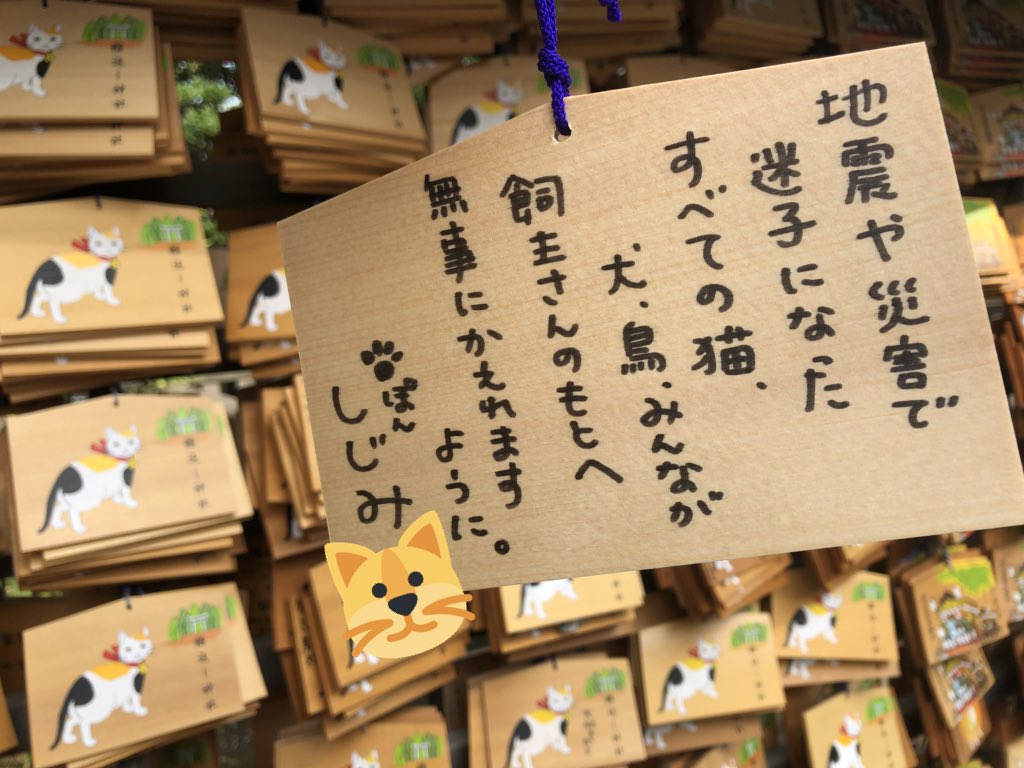 地震や災害で
迷子になった
すべての猫、
犬、鳥、みんなが
飼主さんのもとへ
無事にかえれます
ように。
ぽん
しじみ